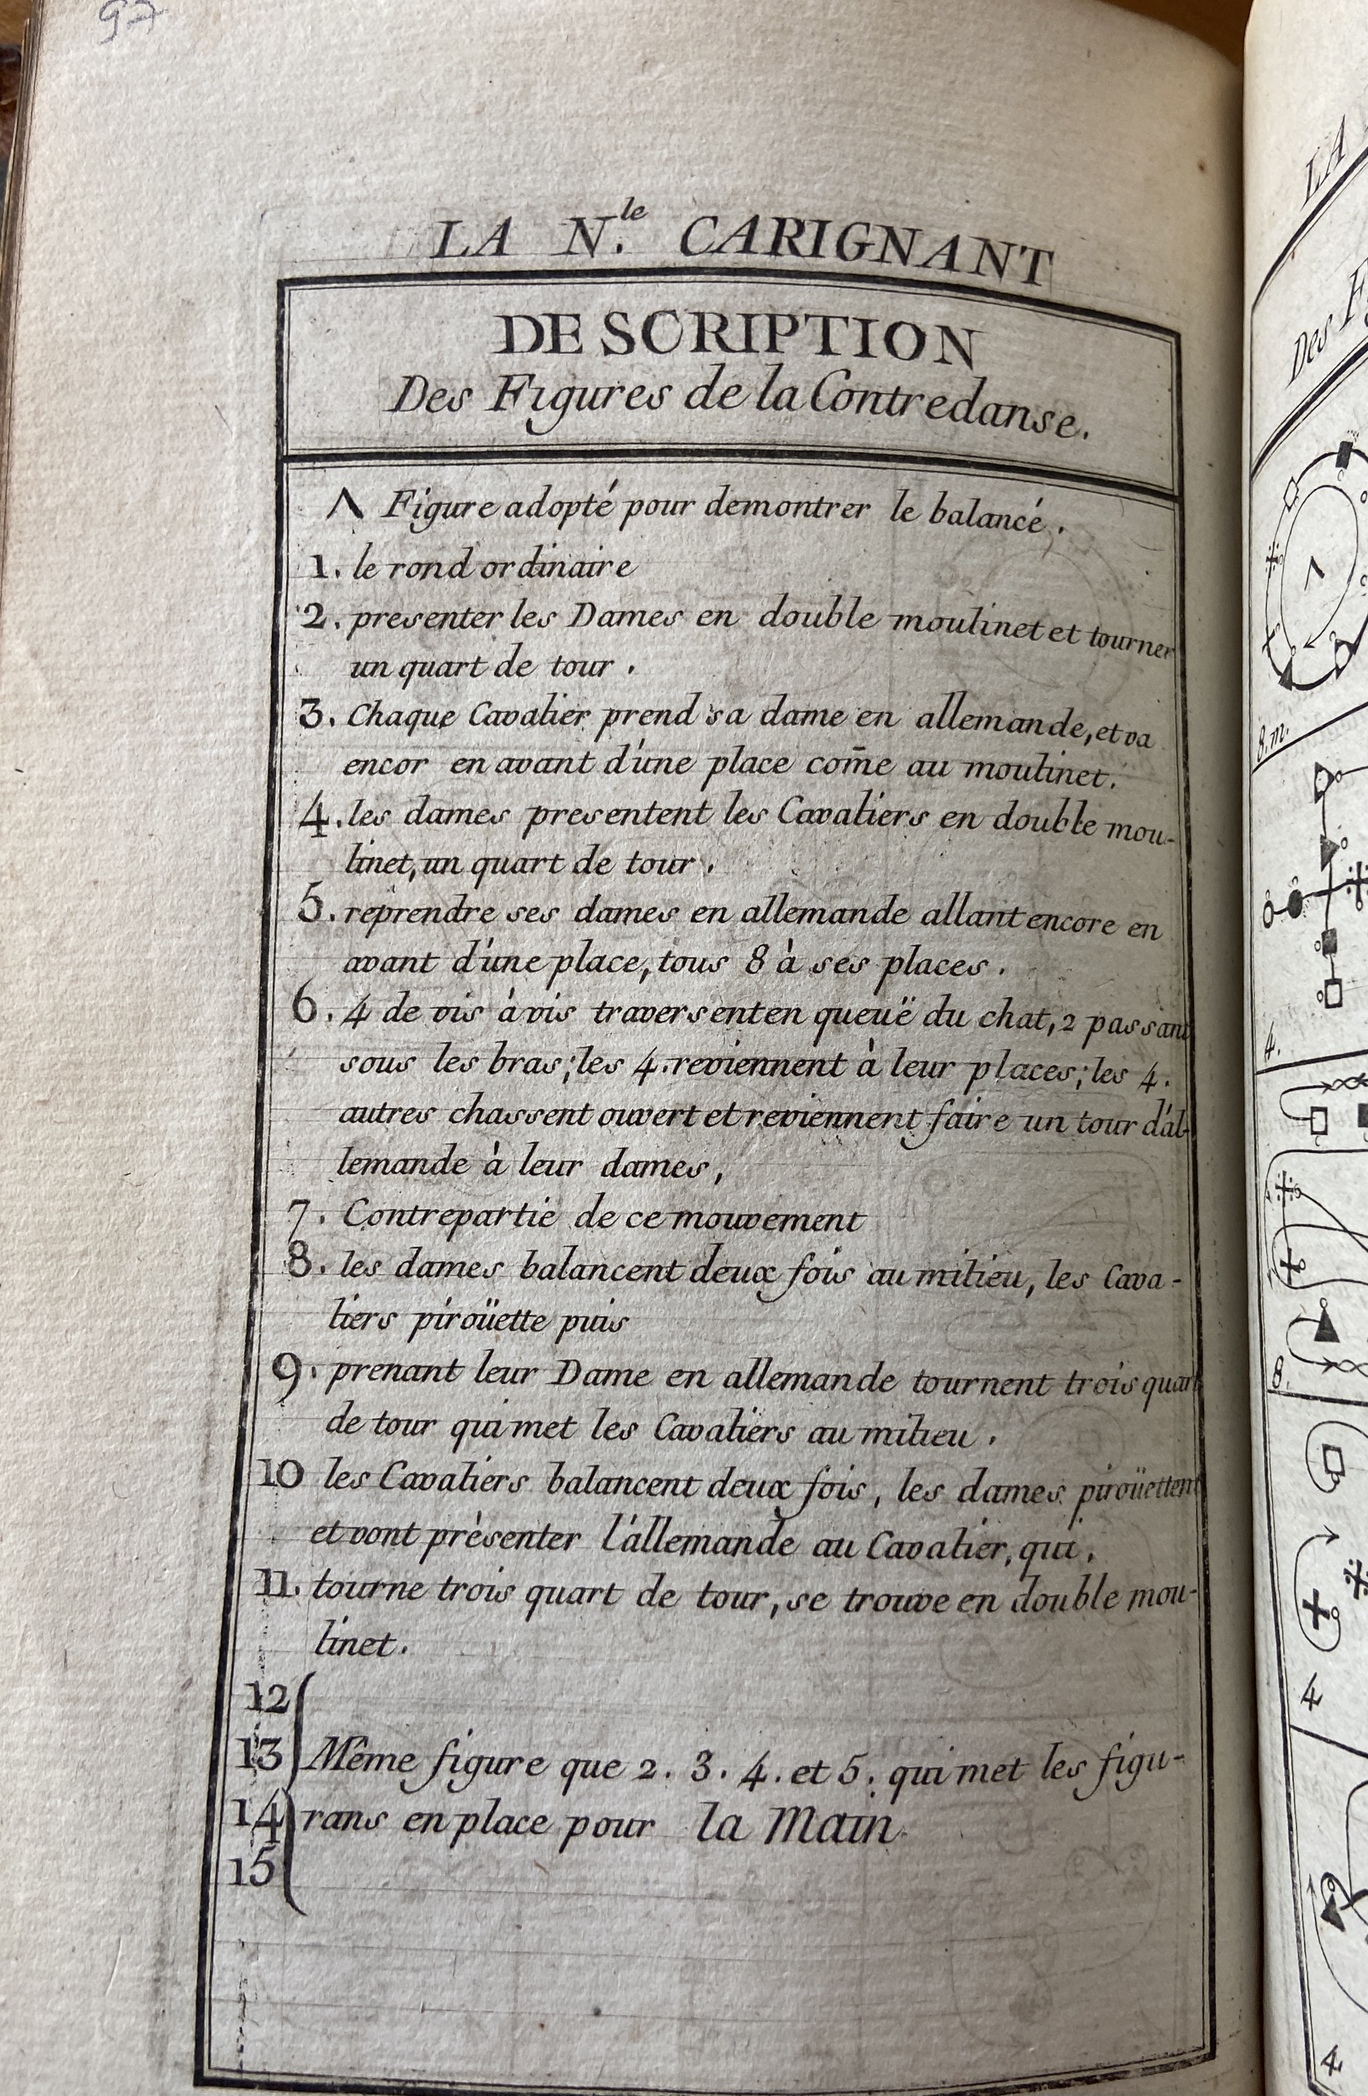 97
LA N.le CARIGNANT
DESCRIPTION
Des Figures de la Contredanse.
Λ Figure adopté pour demontrer le balancé.
1. le rond ordinaire
2. presenter les Dames en double moulinet et tourner
un quart de tour.
3. Chaque Cavalier prend sa dame en allemande, et va
encor en avant d'une place com̄e au moulinet.
4. les dames presentent les Cavaliers en double mou-
linet, un quart de tour.
5. reprendre ses dames en allemande allant encore en
avant d'une place, tous 8 à ses places.
6. 4 de vis à vis traversent en queuë du chat, 2 passant
sous les bras; les 4. reviennent à leur places; les 4.
autres chassent ouvert et reviennent faire un tour d'al-
lemande à leur dames,
7. Contrepartie de ce mouvement
8. les dames balancent deux fois au milieu, les Cava-
liers piroüette puis
9. prenant leur Dame en allemande tournent trois quart
de tour qui met les Cavaliers au milieu.
10 les Cavaliers balancent deux fois, les dames piroüettent
et vont prèsenter l'allemande au Cavalier, qui,
11. tourne trois quart de tour, se trouve en double mou-
linet.
12
13 Même figure que 2. 3. 4. et 5. qui met les figu-
14 rans en place pour la Main
15
LA
Des Fig
Λ
8.m.
4.
8.
4
4